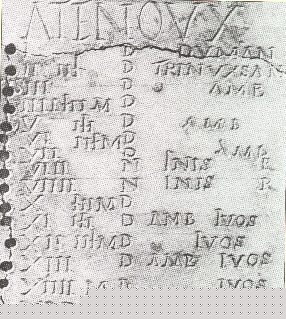 ATENOVX
D DVMAN
D TRINVXSAN
D AMB
M D
V D AMB
VI M D
VII D AMB
VIII N INIS R
VIIII N INIS R
X M D
XI D AMB IVOS
XII M D IVOS
XIII D AMB IVOS
XIIII IVOS